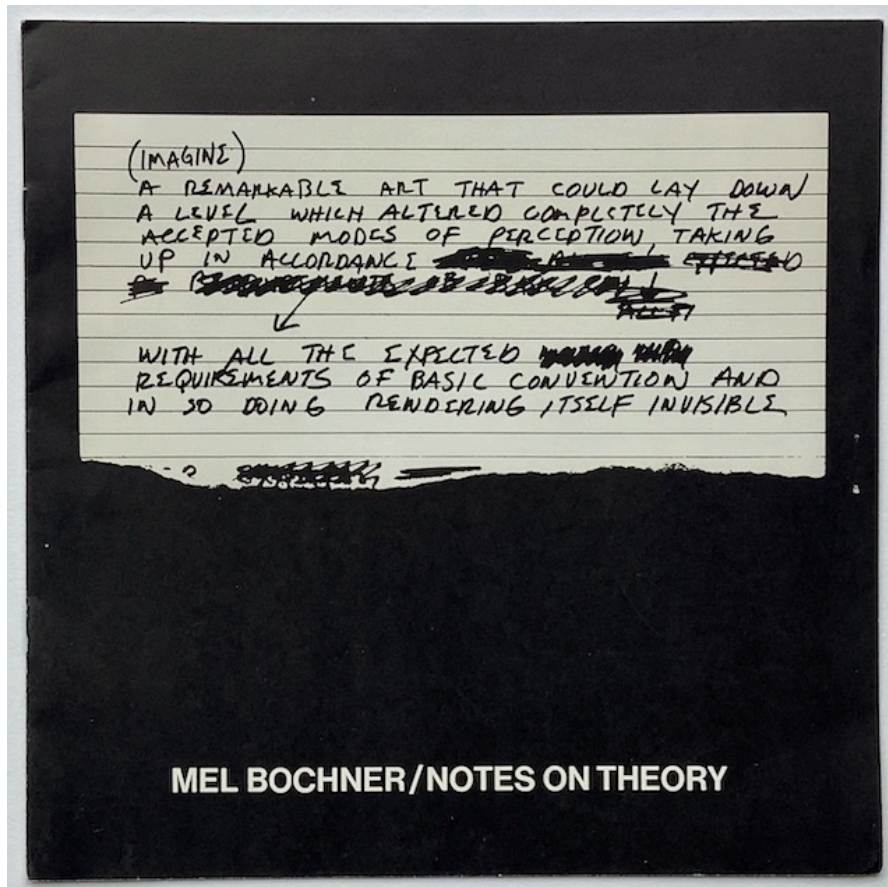 (IMAGINE)
A REMARKABLE ART THAT COULD LAY DOWN
A LEVEL WHICH ALTERED COMPLETELY THE
ACCEPTED MODES OF PERCEPTION, TAKING
UP IN ACCORDANCE
WITH ALL THE EXPECTED
REQUIREMENTS OF BASIC CONVENTION AND
IN SO DOING RENDERING ITSELF INVISIBLE
MEL BOCHNER/NOTES ON THEORY